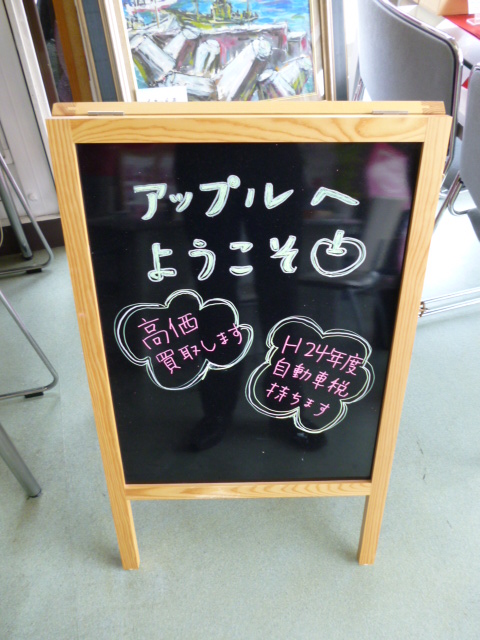 アップルへ
ようこそ
高価
買取します
H24年度
自動車税
持ちます